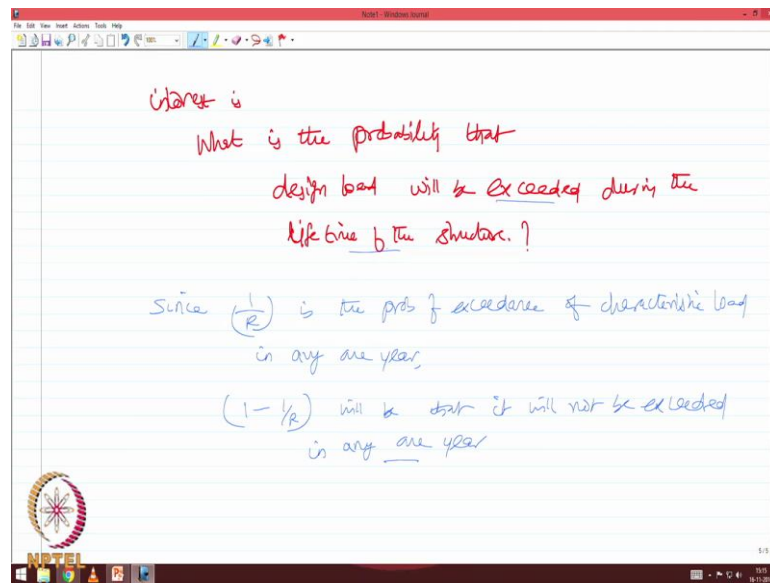 Note1 - Windows Journal
File Edit View Insert Actions Tools Help
interest is
What is the probability that
design load will be exceeded during the
life time of the structure.?
Since (1/R) is the prob of exceedance of characteristic load
in any one year,
(1 - 1/R) will be that it will not be exceeded
in any one year
NPTEL
5/5
15:15